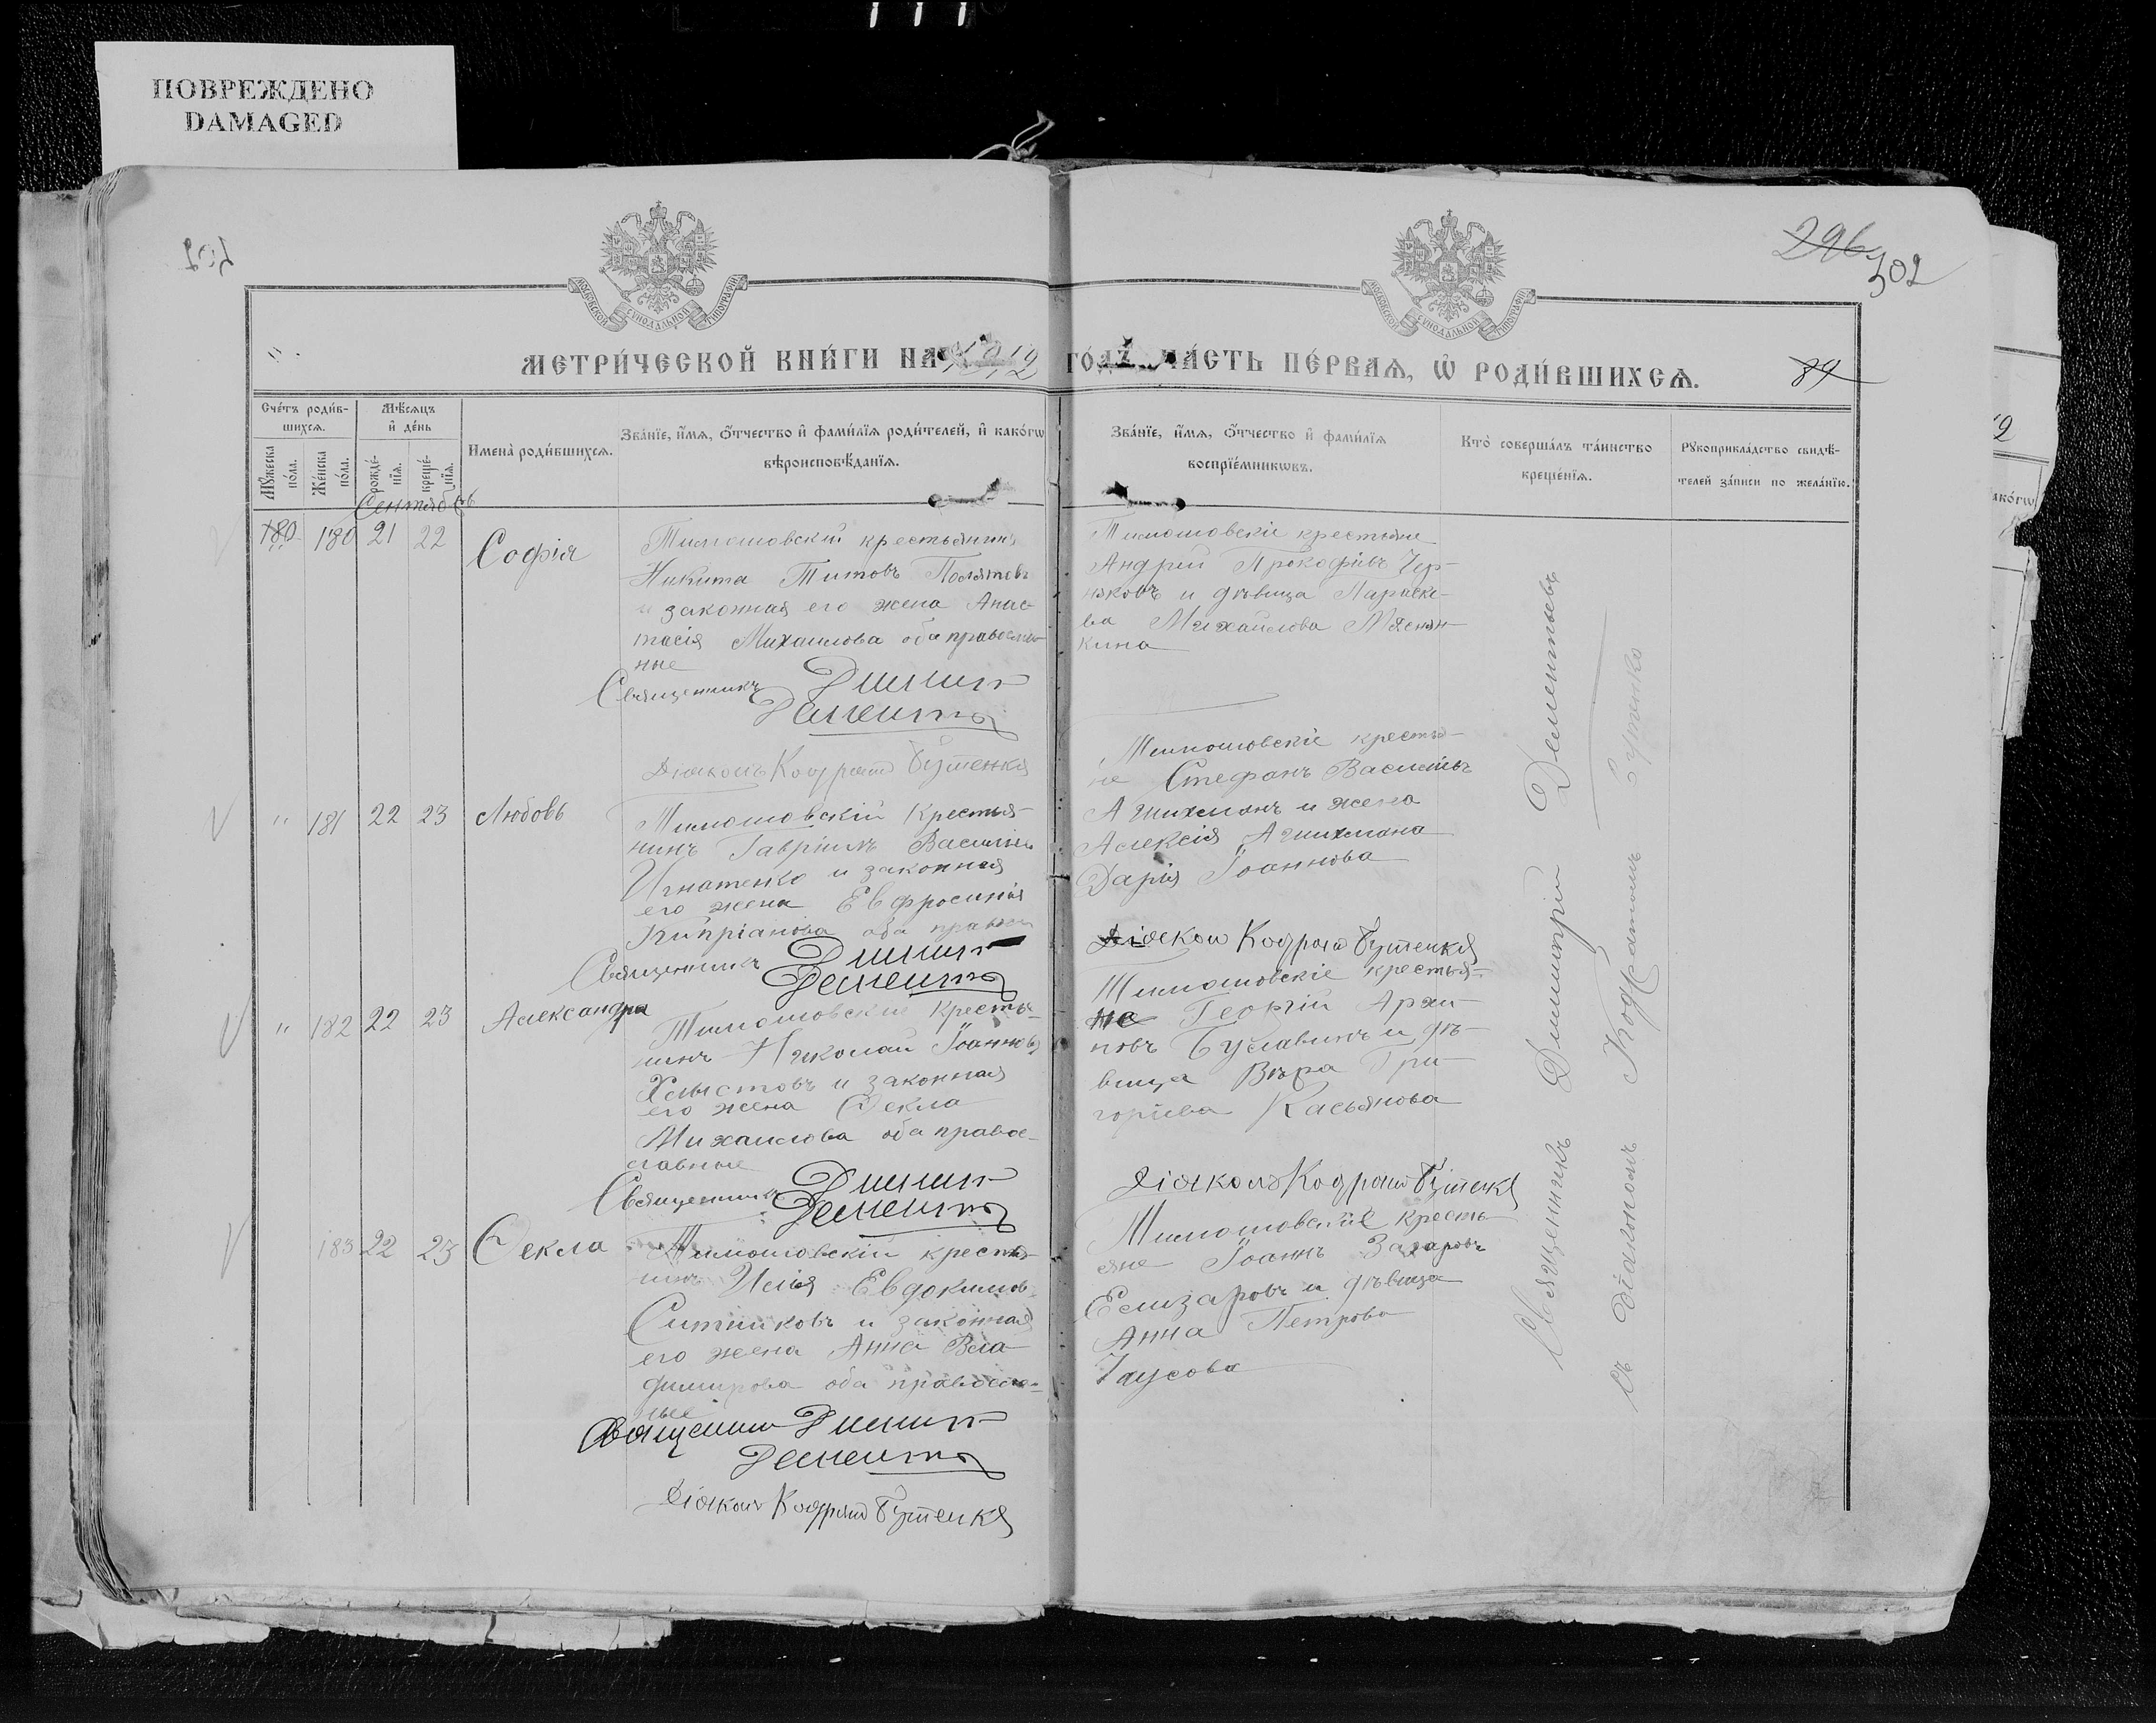 ПОВРЕЖДЕНО
DAMAGED
296
302
МЕТРИ́ЧЕСКОЙ КНИ́ГИ НА 1912 ГО́ДЪ ЧА́СТЬ ПЕ́РВАѦ, Ѽ РОДИ́ВШИХСѦ.
89
Сче́тъ роди́в-
шихсѧ.
Мѣ́сѧцъ
и҆ де́нь
Мꙋ́жеска
по́ла.
Же́нска
по́ла.
рожде́-
нїѧ.
креще́-
нїѧ.
Имена̀ роди́вшихсѧ.
Зва́нїе, и҆́мѧ, ѻ҆́тчество и҆ фами́лїѧ роди́телей, и҆ како́гѡ
вѣроисповѣ́данїѧ.
Зва́нїе, и҆́мѧ, ѻ҆́тчество и҆ фами́лїѧ
воспрїе́мникѡвъ.
Кто̀ соверша́лъ та́инство
креще́нїѧ.
Рꙋкоприкла́дство свидѣ́-
телей за́писи по жела́нїю.
Сентябрь
180 180 21 22
Софія
Тимошовскій крестьянинъ
Никита Титовъ
и законная его жена Анас-
тасія Михаилова оба православ-
ные
Священникъ Димитр
Демент
Діаконъ Кодратъ Бутенко
Тимошовскіе крестьяне
Андрей Прокофьевъ Чер-
няковъ и дѣвица Параске-
ва Михайлова Мясни-
кина
" 181 22 23
Любовь
Тимошовскій крестья-
нинъ Гавріилъ Васильевъ
Игнатенко и законная
его жена Евфросинія
Кипріанова оба правосл
Священникъ Димитр
Демент
Тимошовскіе крестья-
не Стефанъ Васильевъ
и жена
Алексія
Дарія Іоаннова
Діаконъ Кодратъ Бутенко
" 182 22 23
Александра
Тимошовскій крестья-
нинъ Николай Іоанновъ
Хлыстовъ и законная
его жена Ѳекла
Михаилова оба право-
славные
Священникъ Димитр
Демент
Тимошовскіе крестья-
не Георгій Архи-
повъ Буславинъ и дѣ-
вица Вѣра Гри-
горіева Касьянова
Діаконъ Кодратъ Бутенко
183 22 23
Ѳекла
Тимошовскій крестья-
нинъ Илія Евдокимовъ
Ситниковъ и законная
его жена Анна Вла-
димирова оба православ-
ные
Священник Димитр
Демент
Діаконъ Кодратъ Бутенко
Тимошовскіе кресть-
яне Іоаннъ Захаровъ
Елизаровъ и дѣвица
Анна Петрова
Чаусова
Священникъ Димитрій Дементьевъ
съ діакономъ Кодратомъ Бутенко